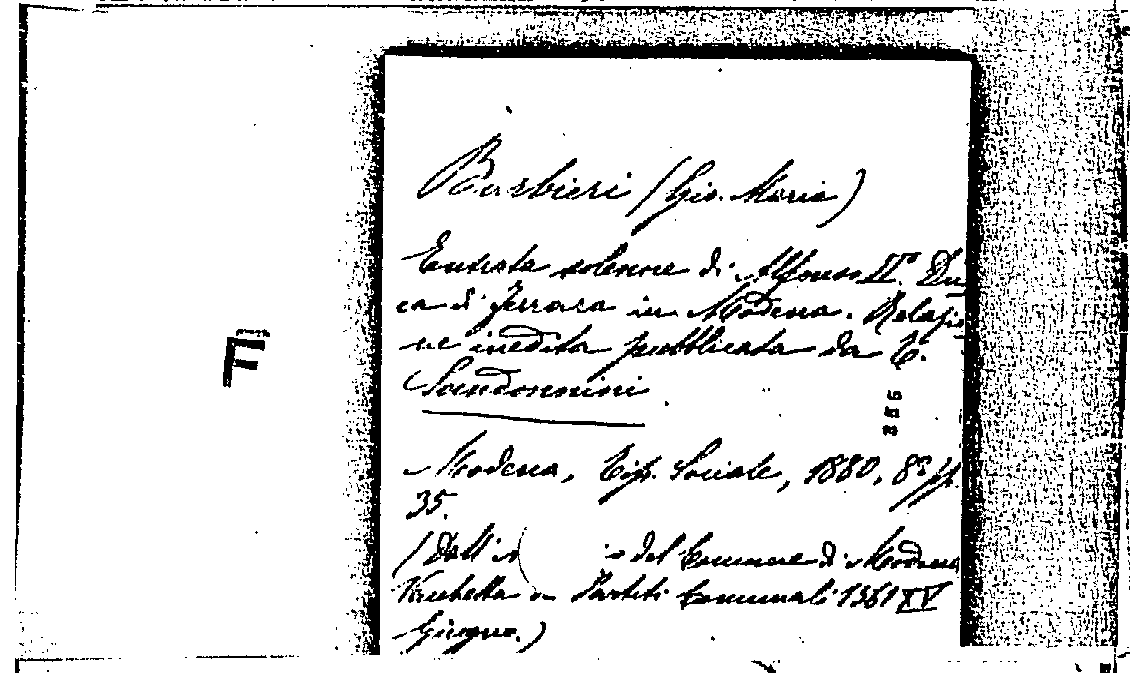 Barbieri (Gio. Maria)
Entrata solenne di Alfonso II°. Du
ca di Ferrara in Modena. Relazio
ne inedita pubblicata da T.
Sandonnini
Modena, Tip. Sociale, 1880, 8° pp.
35.
(Dall' del Comune di Modena
Vacchetta Partiti Comunali 1561 XV
Giugno.)
F
356